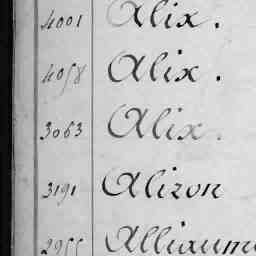 4001 Alix.
4058 Alix.
3063 Alix.
3191 Alizon
2955 Alliaume